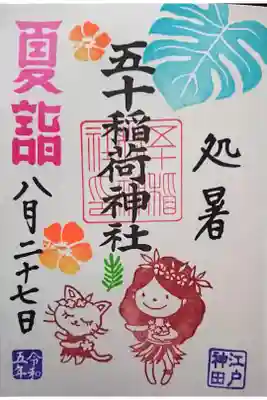 処暑
五十稲荷神社
夏詣
八月二十七日
江戸
神田
令和
五年